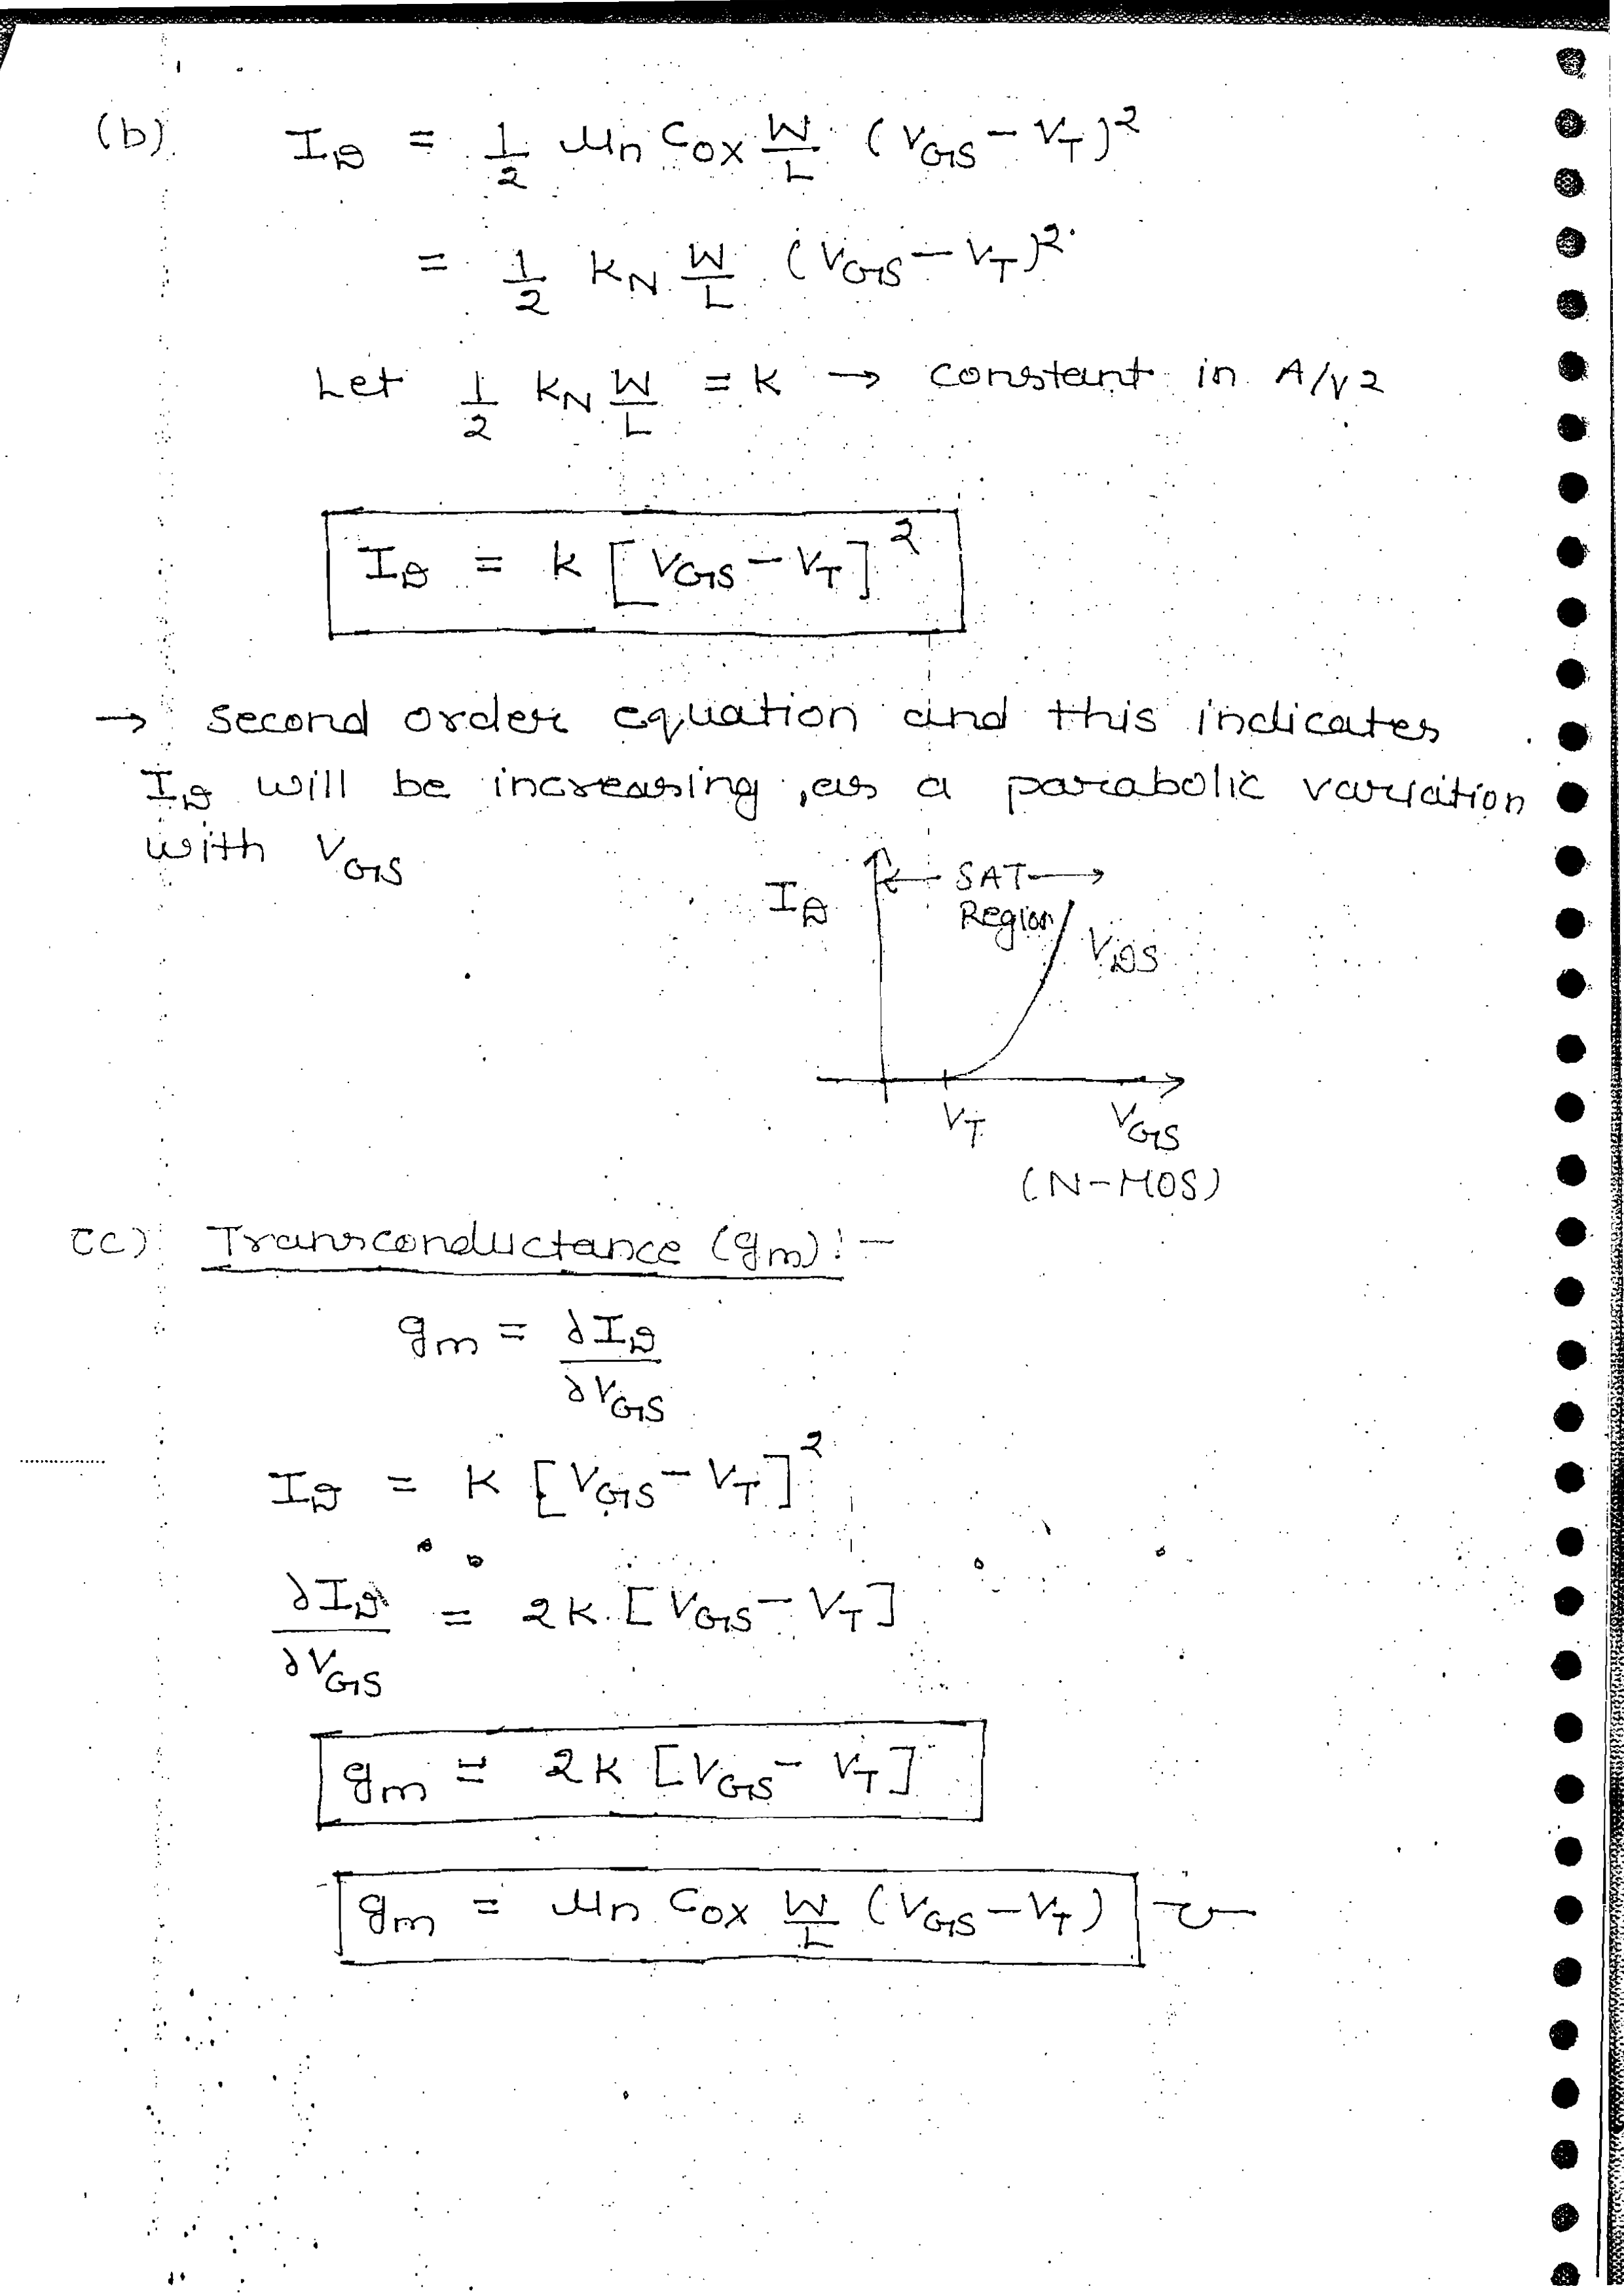 (b) I_D = 1/2 μn Cox W/L (VGS - VT)²
= 1/2 KN W/L (VGS - VT)²
Let 1/2 KN W/L = K → constant in A/V2
I_D = k [VGS - VT]²
→ second order equation and this indicates
I_D will be increasing, as a parabolic variation
with VGS
I_D ← SAT →
Region
VDS
VT VGS
(N-MOS)
(c) Transconductance (gm):-
gm = ∂I_D/∂VGS
I_D = K [VGS - VT]²
∂I_D/∂VGS = 2K [VGS - VT]
gm = 2K [VGS - VT]
gm = μn Cox W/L (VGS - VT) ℧